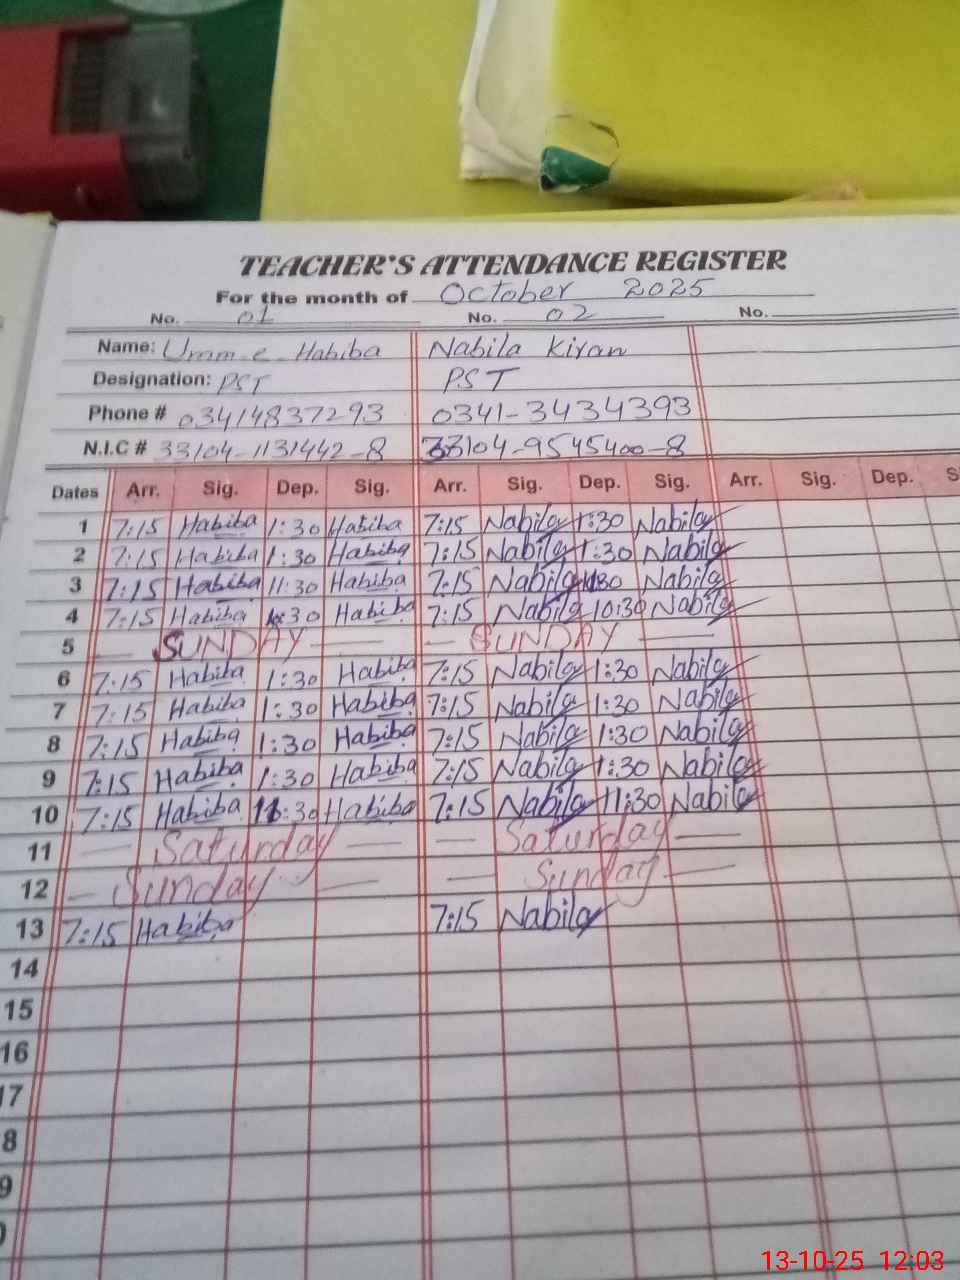 TEACHER'S ATTENDANCE REGISTER
For the month of October 2025
No. 01 No. 02 No.
Name: Umm-e-Habiba Nabila Kiran
Designation: PST PST
Phone # 03414837293 0341-3434393
N.I.C # 33104-1131442-8 33104-9545400-8
Dates Arr. Sig. Dep. Sig. Arr. Sig. Dep. Sig. Arr. Sig. Dep. S
1 7:15 Habiba 1:30 Habiba 7:15 Nabila 1:30 Nabila
2 7:15 Habiba 1:30 Habiba 7:15 Nabila 1:30 Nabila
3 7:15 Habiba 11:30 Habiba 7:15 Nabila Nabila
4 7:15 Habiba Habiba 7:15 Nabila 10:30 Nabila
5 SUNDAY SUNDAY
6 7:15 Habiba 1:30 Habiba 7:15 Nabila 1:30 Nabila
7 7:15 Habiba 1:30 Habiba 7:15 Nabila 1:30 Nabila
8 7:15 Habiba 1:30 Habiba 7:15 Nabila 1:30 Nabila
9 7:15 Habiba 1:30 Habiba 7:15 Nabila 1:30 Nabila
10 7:15 Habiba 11:30 Habiba 7:15 Nabila 11:30 Nabila
11 Saturday Saturday
12 Sunday Sunday
13 7:15 Habiba 7:15 Nabila
14
15
16
17
8
9
13-10-25 12:03